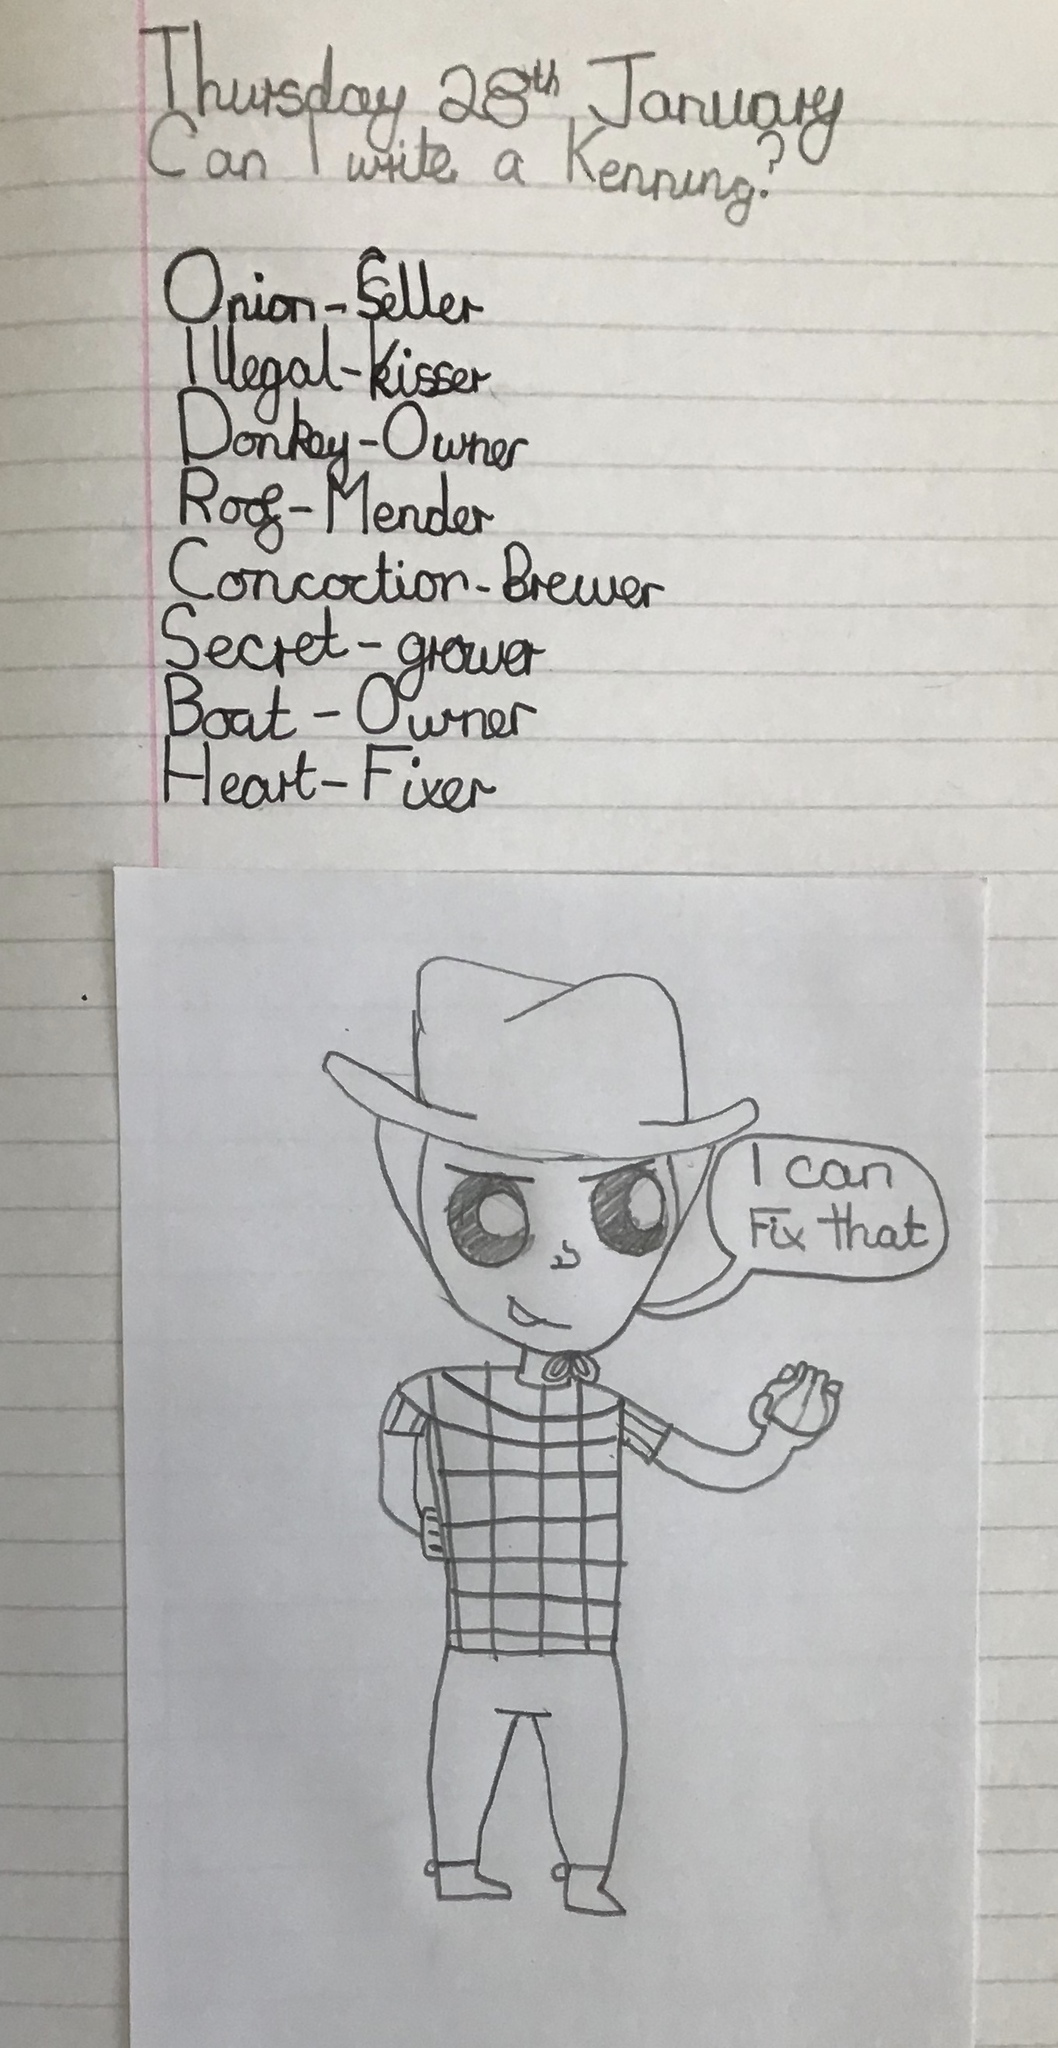 Thursday 28th January
Can I write a Kenning?
Onion-Seller
Illegal-kisser
Donkey-Owner
Roof-Mender
Concoction-Brewer
Secret-grower
Boat-Owner
Heart-Fixer
I can
Fix that